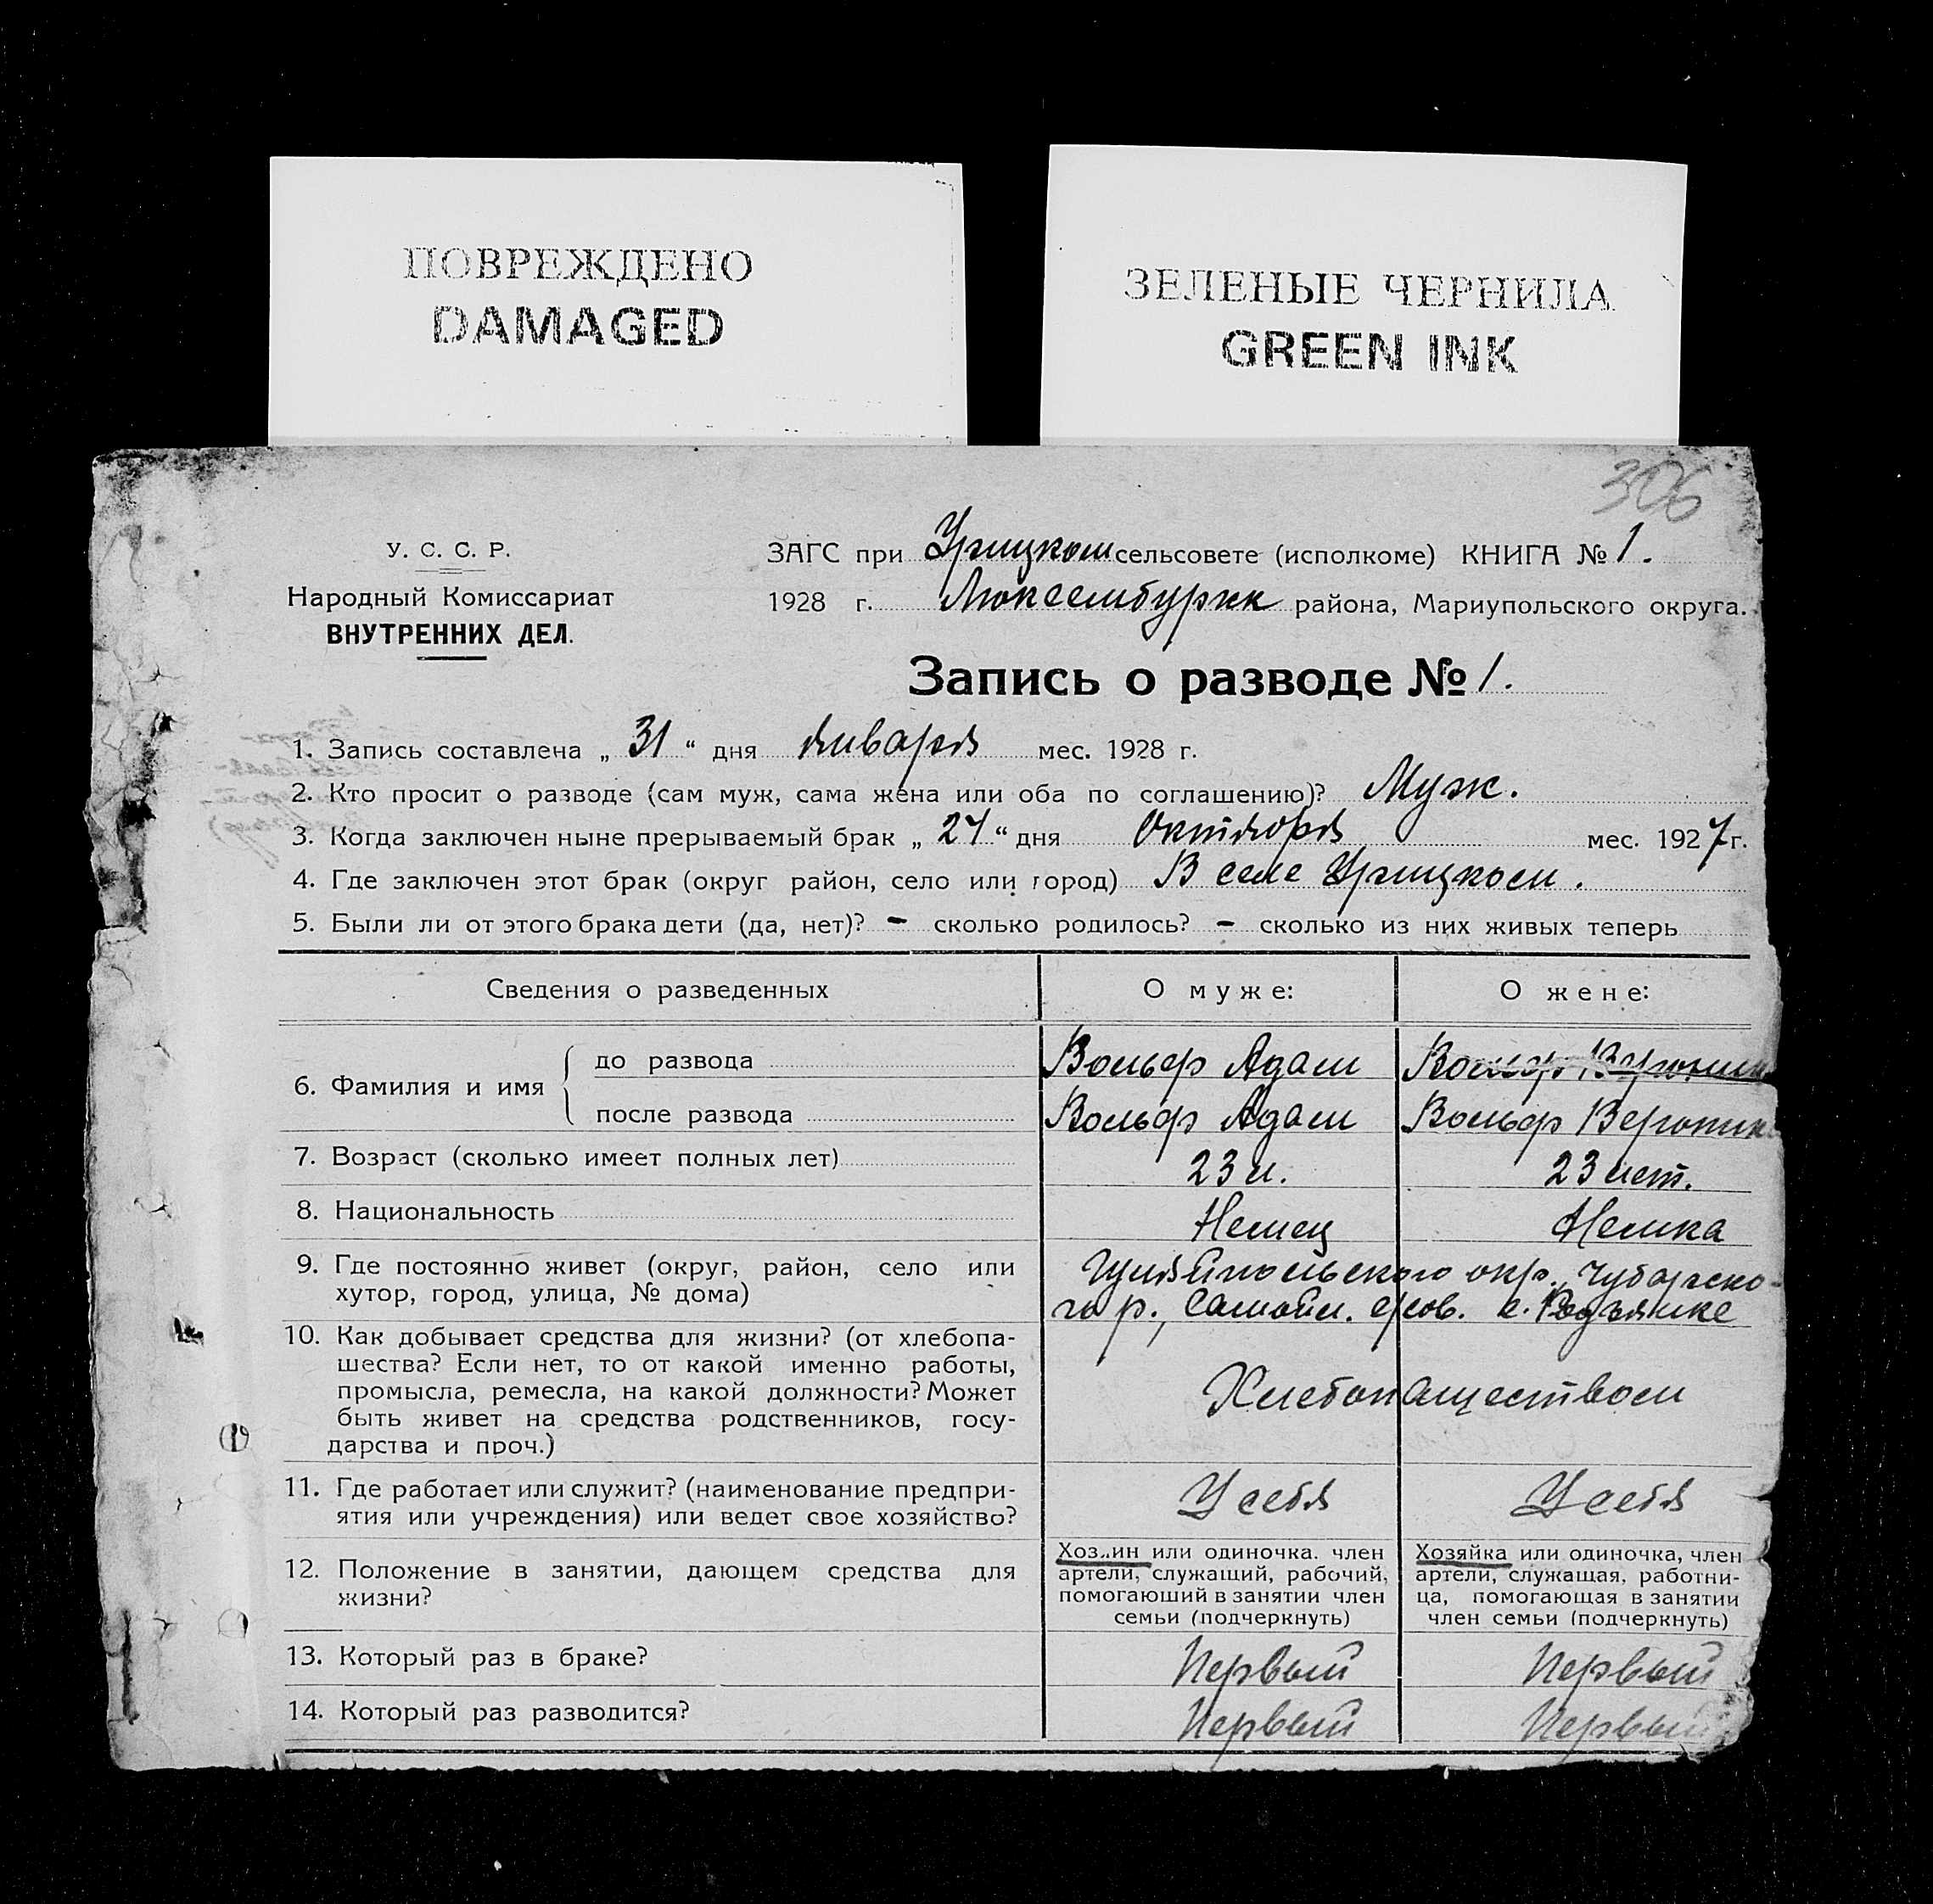 ПОВРЕЖДЕНО
DAMAGED
ЗЕЛЕНЫЕ ЧЕРНИЛА
GREEN INK
306
У. С. С. Р.
Народный Комиссариат
ВНУТРЕННИХ ДЕЛ.
ЗАГС при Урицком сельсовете (исполкоме) КНИГА № 1.
1928 г. Люксембургк района, Мариупольского округа.
Запись о разводе № 1.
1. Запись составлена „ 31 “ дня Января мес. 1928 г.
2. Кто просит о разводе (сам муж, сама жена или оба по соглашению)? Муж.
3. Когда заключен ныне прерываемый брак „ 24 “ дня Октября мес. 1927 г.
4. Где заключен этот брак (округ район, село или город) В селе Урицком.
5. Были ли от этого брака дети (да, нет)? – сколько родилось? – сколько из них живых теперь
Сведения о разведенных О муже: О жене:
6. Фамилия и имя
до развода Вольф Адам Вольф
после развода Вольф Адам Вольф Вероник
7. Возраст (сколько имеет полных лет) 23 л. 23 лет.
8. Национальность Немец Немка
9. Где постоянно живет (округ, район, село или
хутор, город, улица, № дома)
Гуляйпольского окр., Чубарско-
го р., Самойл. с/сов. с.
10. Как добывает средства для жизни? (от хлебопа-
шества? Если нет, то от какой именно работы,
промысла, ремесла, на какой должности? Может
быть живет на средства родственников, госу-
дарства и проч.)
Хлебопашеством
11. Где работает или служит? (наименование предпри-
ятия или учреждения) или ведет свое хозяйство?
У себя У себя
12. Положение в занятии, дающем средства для
жизни?
Хоз..ин или одиночка. член
артели, служащий, рабочий,
помогаюший в занятии член
семьи (подчеркнуть)
Хозяйка или одиночка, член
артели, служащая, работни-
ца, помогающая в занятии
член семьи (подчеркнуть)
13. Который раз в браке? Первый Первый
14. Который раз разводится? Первый Первый